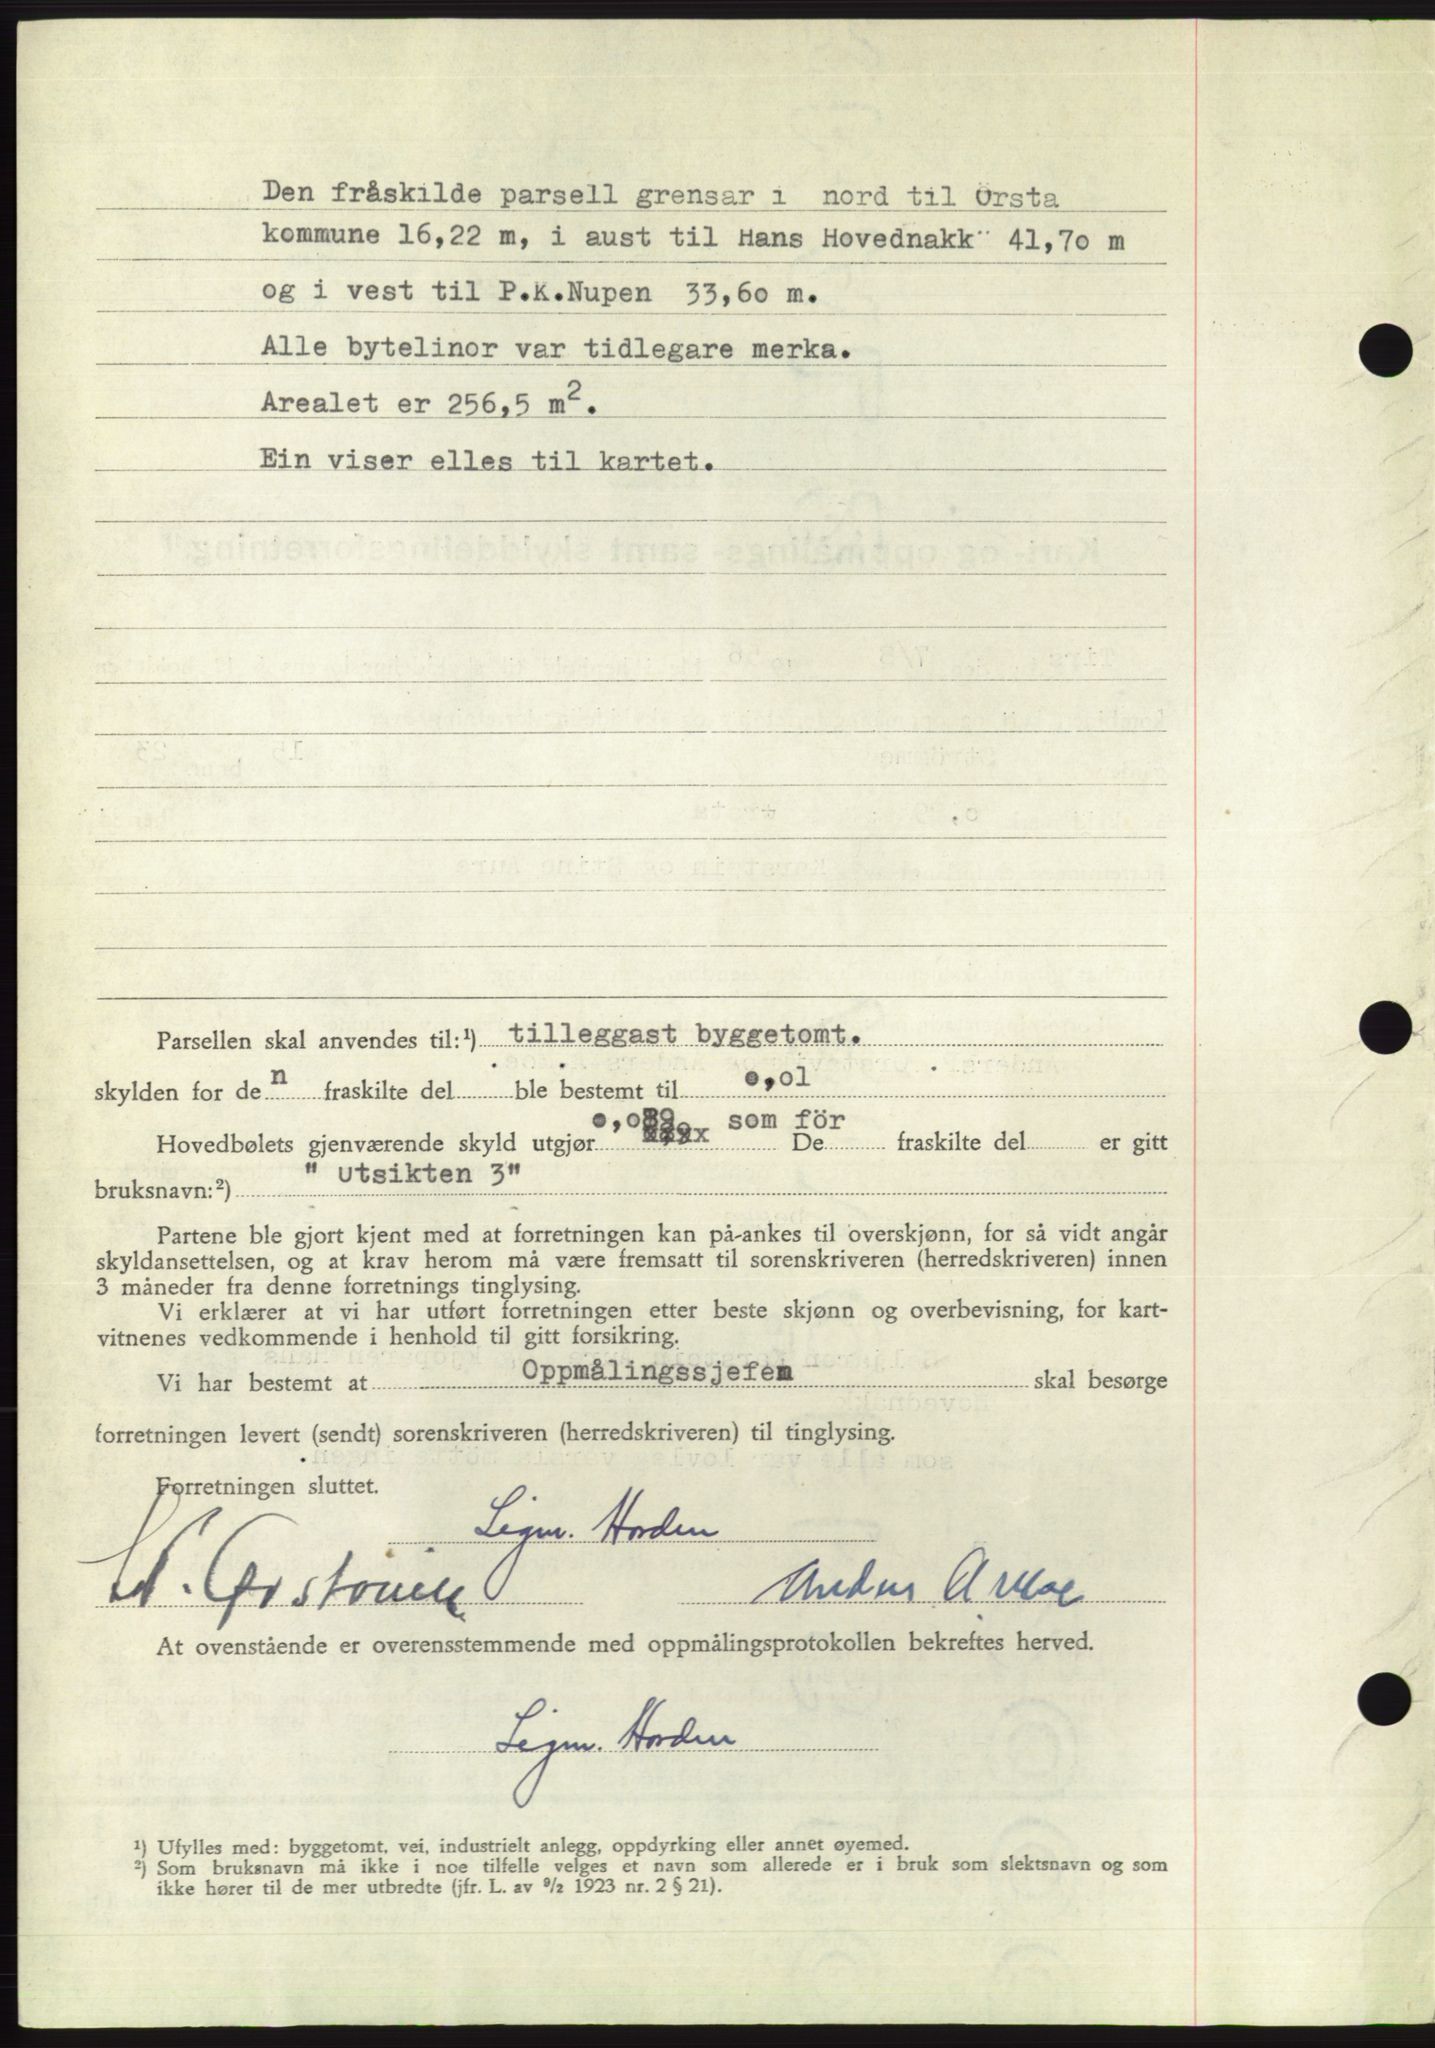 Den fråskilde parsell grensar i nord til Örsta
kommune 16,22 m, i aust til Hans Hovednakk¨ 41,70 m
og i vest til P.K.Nupen 33,60 m.
Alle bytelinor var tidlegare merka.
Arealet er 256,5 m².
Ein viser elles til kartet.
Parsellen skal anvendes til:¹) tilleggast byggetomt.
skylden for de n fraskilte del ble bestemt til o,ol
o,o89 som för
Hovedbølets gjenværende skyld utgjør De fraskilte del er gitt
bruksnavn:²) " Utsikten 3"
Partene ble gjort kjent med at forretningen kan på-ankes til overskjønn, for så vidt angår
skyldansettelsen, og at krav herom må være fremsatt til sorenskriveren (herredskriveren) innen
3 måneder fra denne forretnings tinglysing.
Vi erklærer at vi har utført forretningen etter beste skjønn og overbevisning, for kart-
vitnenes vedkommende i henhold til gitt forsikring.
Vi har bestemt at Oppmålingssjefen skal besørge
forretningen levert (sendt) sorenskriveren (herredskriveren) til tinglysing.
Forretningen sluttet.
Sigm. Horden
Anders
At ovenstående er overensstemmende med oppmålingsprotokollen bekreftes herved.
Sigm. Horden
¹) Ufylles med: byggetomt, vei, industrielt anlegg, oppdyrking eller annet øyemed.
²) Som bruksnavn må ikke i noe tilfelle velges et navn som allerede er i bruk som slektsnavn og som
ikke hører til de mer utbredte (jfr. L. av 9/2 1923 nr. 2 § 21).